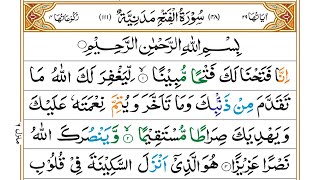 اٰيَاتُهَا ٢٩ (٤٨) سُوْرَةُ الْفَتْحِ مَدَنِيَّةٌ (١١١) رُكُوْعَاتُهَا ٤
بِسْمِ اللّٰهِ الرَّحْمٰنِ الرَّحِيْمِ
اِنَّا فَتَحْنَا لَكَ فَتْحًا مُّبِيْنًا ۙ﴿١﴾ لِّيَغْفِرَ لَكَ اللّٰهُ مَا
تَقَدَّمَ مِنْ ذَنْۢبِكَ وَمَا تَاَخَّرَ وَيُتِمَّ نِعْمَتَهٗ عَلَيْكَ
وَيَهْدِيَكَ صِرَاطًا مُّسْتَقِيْمًا ۙ﴿٢﴾ وَّيَنْصُرَكَ اللّٰهُ
نَصْرًا عَزِيْزًا ﴿٣﴾ هُوَ الَّذِيْۤ اَنْزَلَ السَّكِيْنَةَ فِيْ قُلُوْبِ